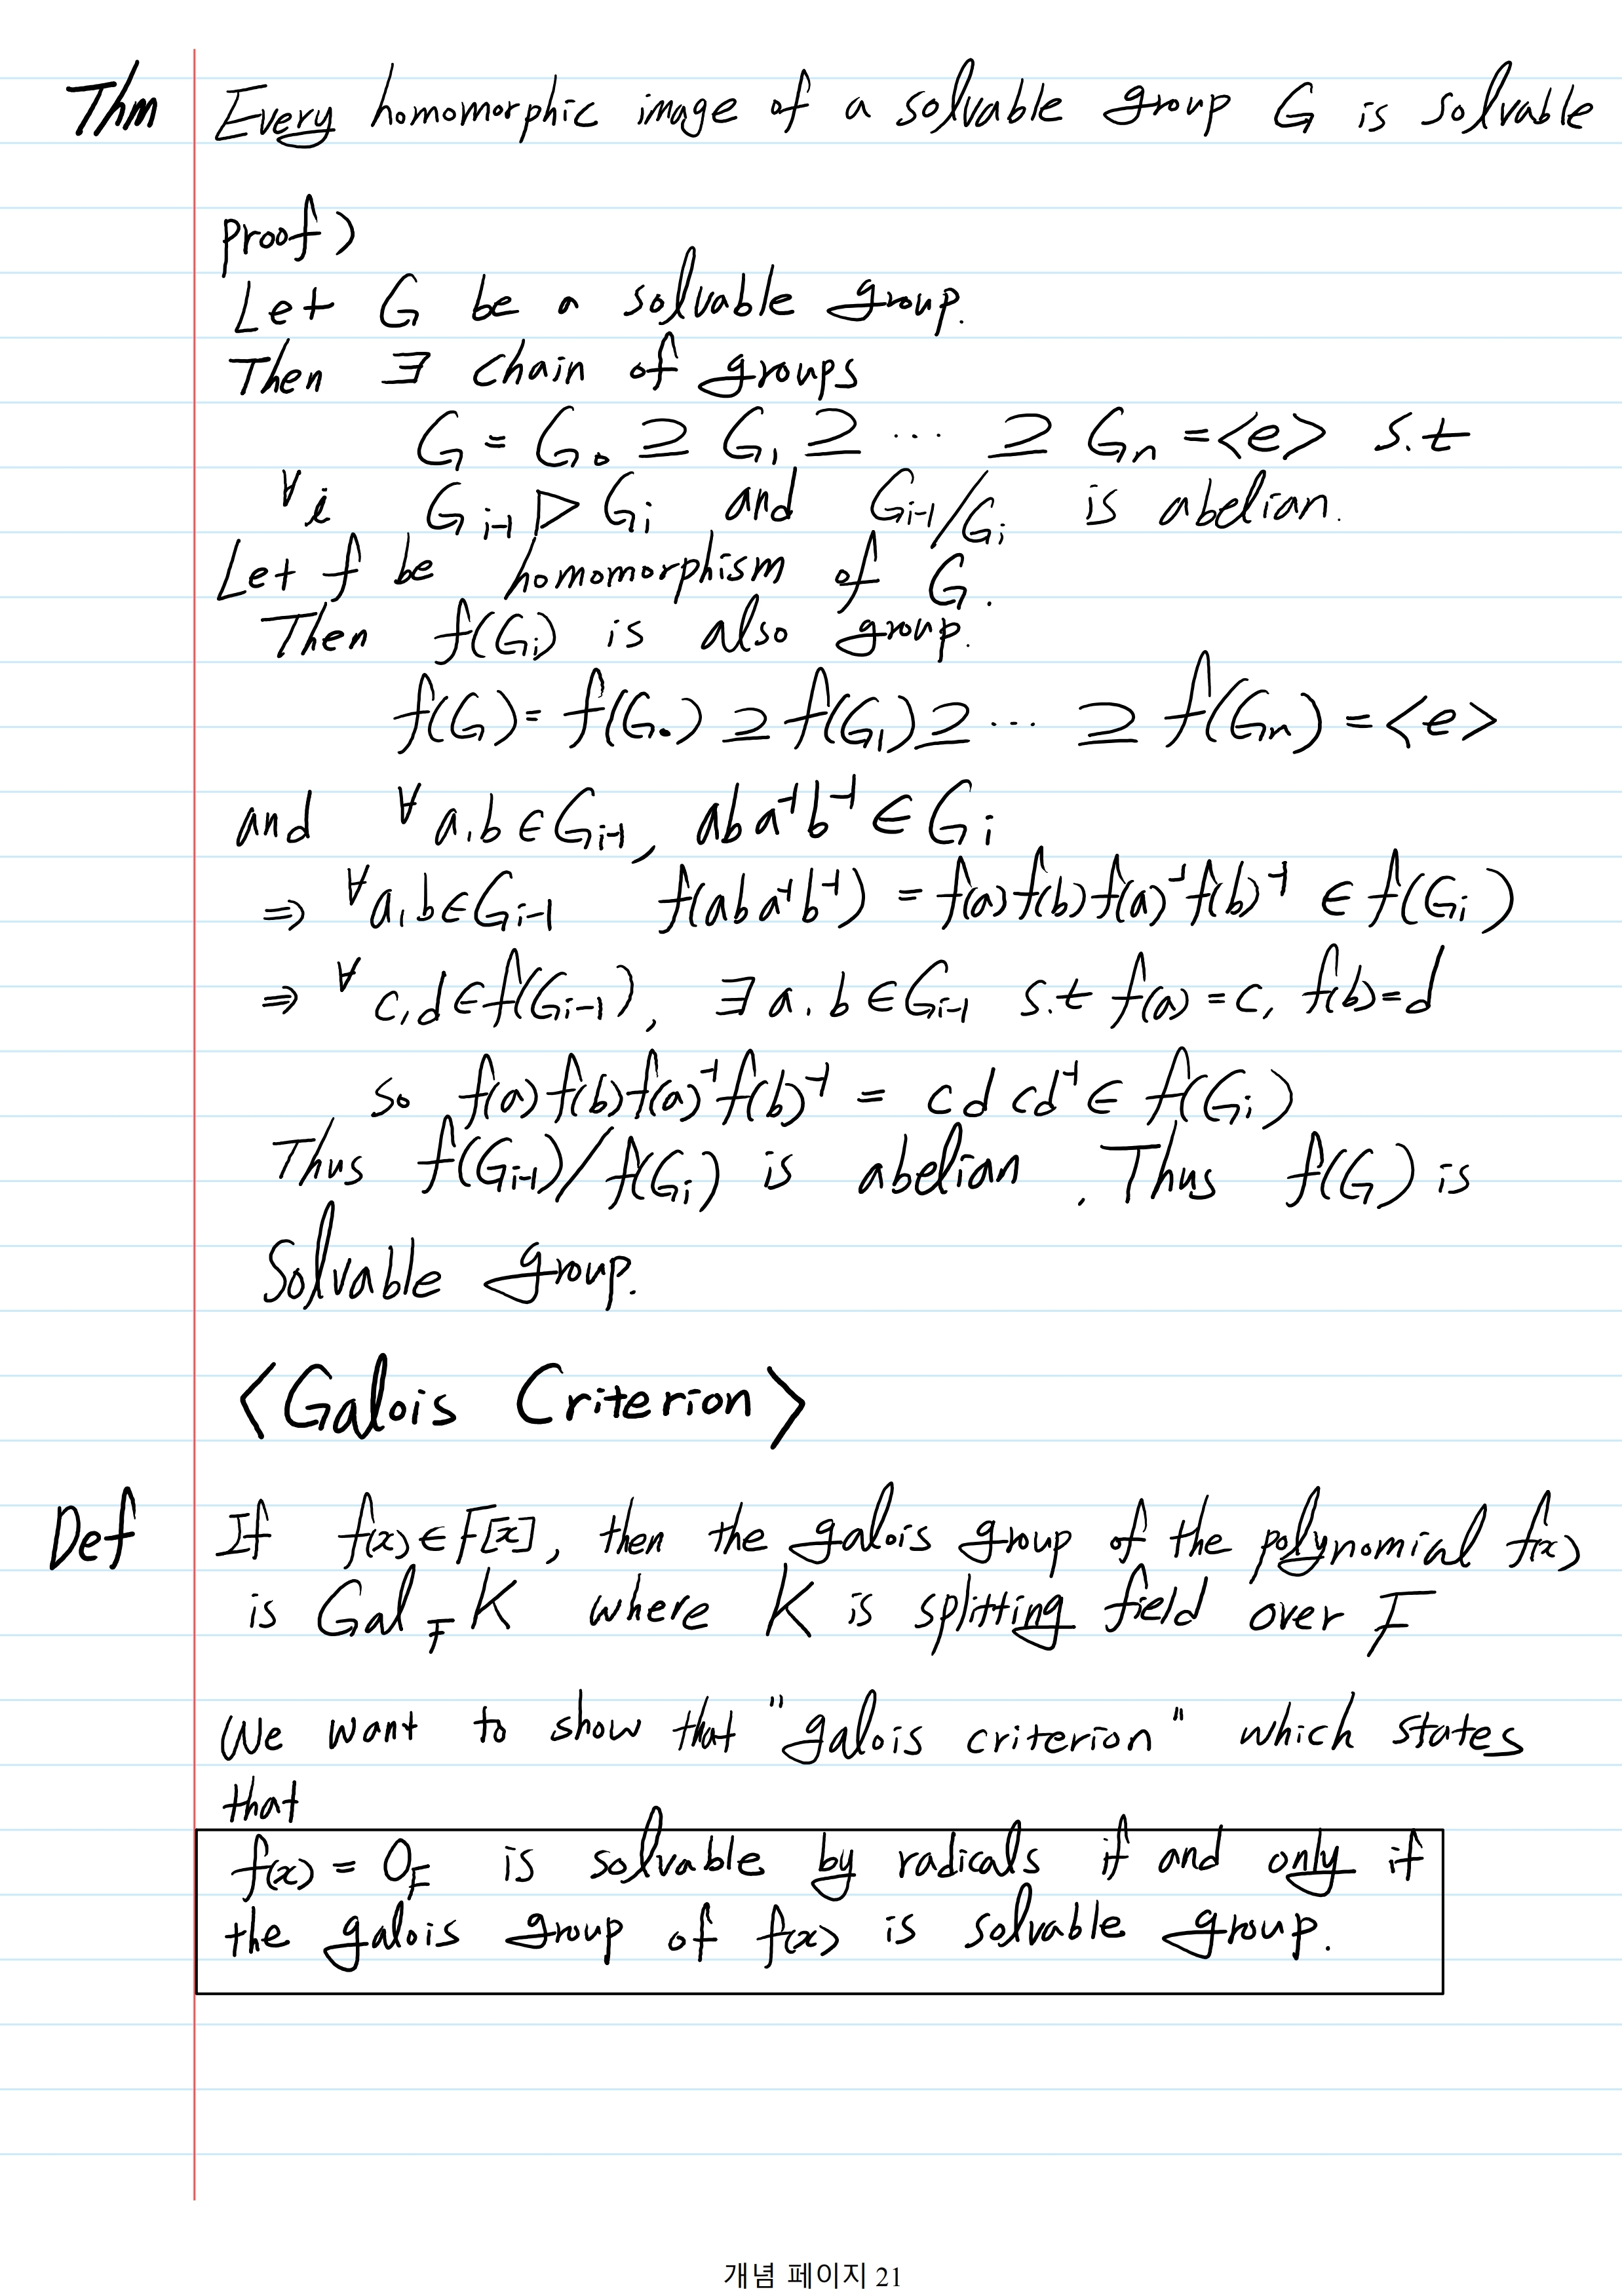 Thm Every homomorphic image of a solvable group G is solvable
proof)
Let G be a solvable group.
Then ∃ chain of groups
G = G₀ ⊇ G₁ ⊇ ⋯ ⊇ Gₙ = <e> s.t
∀i Gᵢ₋₁ ▷ Gᵢ and Gᵢ₋₁/Gᵢ is abelian.
Let f be homomorphism of G.
Then f(Gᵢ) is also group.
f(G) = f(G₀) ⊇ f(G₁) ⊇ ⋯ ⊇ f(Gₙ) = <e>
and ∀a,b ∈ Gᵢ₋₁, aba⁻¹b⁻¹ ∈ Gᵢ
⇒ ∀a,b ∈ Gᵢ₋₁ f(aba⁻¹b⁻¹) = f(a)f(b)f(a)⁻¹f(b)⁻¹ ∈ f(Gᵢ)
⇒ ∀c,d ∈ f(Gᵢ₋₁), ∃a,b ∈ Gᵢ₋₁ s.t f(a) = c, f(b) = d
so f(a)f(b)f(a)⁻¹f(b)⁻¹ = cdcd⁻¹ ∈ f(Gᵢ)
Thus f(Gᵢ₋₁)/f(Gᵢ) is abelian. Thus f(G) is
Solvable group.
<Galois Criterion>
Def If f(x) ∈ F[x], then the galois group of the polynomial f(x)
is Gal_F K where K is splitting field over F
We want to show that "galois criterion" which states
that
f(x) = 0_F is solvable by radicals if and only if
the galois group of f(x) is solvable group.
개념 페이지 21